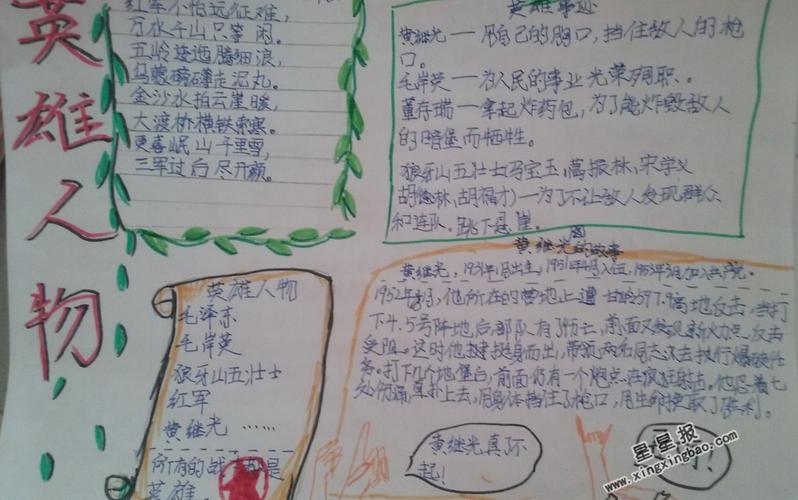 英雄人物
红军不怕远征难，
万水千山只等闲。
五岭逶迤腾细浪，
乌蒙磅礴走泥丸。
金沙水拍云崖暖，
大渡桥横铁索寒。
更喜岷山千里雪，
三军过后尽开颜。
英雄事迹
黄继光一用自己的胸口，挡住敌人的枪
口。
毛岸英一为人民的事业光荣殉职。
董存瑞一拿起炸药包，为了能炸毁敌人
的暗堡而牺牲。
狼牙山五壮士(马宝玉，葛振林，宋学义
胡德林，胡福才)一为了不让敌人发现群众
和连队。跳下悬崖。
英雄人物
毛泽东
毛岸英
狼牙山五壮士
红军
黄继光……
所有的战 是
英雄。
黄继光的故事
黄继光，1931年1月出生，1951年 入伍，1953年 月加入
1952年 他所在的营地上遭 甘岭597.9高地反击，当打
下4.5号阵地后，部队有了伤亡，前面又发现新火力点，反击
受阻。这时他 挺身而出，带领两名 去执行爆破任
务。打下几个地堡白，前面仍有一个 点在疯狂射击。他忍着七
处伤痛，直扑上去，用身体挡住了枪口，用生命换取了胜利。
黄继光真了不
起！
星星报
www.xingxingbao.cn